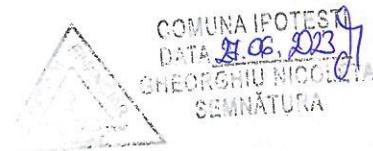 COMUNA IPOTESTI
DATA 27.06.2023
GHEORGHIU NICOLETA
SEMNĂTURA